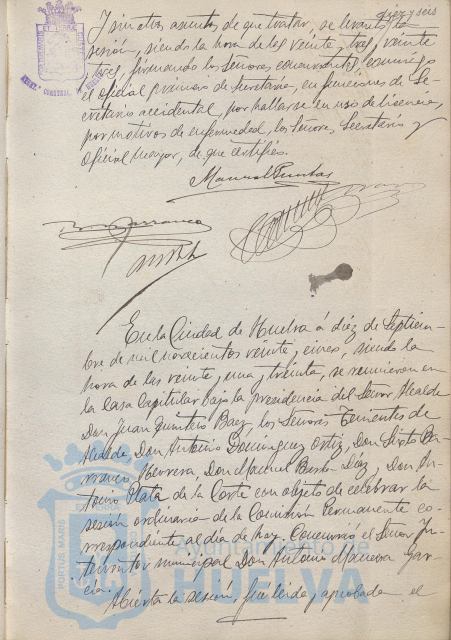 diez y seis
Y sin otros asuntos de que tratar, se levantó la
sesión, siendo la hora de las veinte y tres, veinte
tres, firmando los señores concurrentes, conmigo
el oficial primero de Secretaría, en funciones de Se-
cretario accidental, por hallarse en uso de licencia,
por motivos de enfermedad, los señores, Secretario y
Oficial mayor, de que certifico.
Manuel
En la Ciudad de Huelva á diez de Septiem-
bre de mil novecientos veinte y cinco, siendo la
hora de las veinte y una y treinta, se reunieron en
la Casa Capitular bajo la presidencia del Señor Alcalde
Don Juan Quintero Baez, los Señores Tenientes de
Alcalde, Don Antonio Dominguez Ortiz, Don Sixto Ba-
rranco Herrera, Don Manuel Díaz y Don An-
tonio Plata de la Corte con objeto de celebrar la
sesión ordinaria de la Comisión Permanente co-
rrespondiente al día de hoy. Concurrió el Señor In-
terventor municipal Don Antonio Gar-
cía.
Abierta la sesión, fué leida y aprobada el
PORTUS MARIS
Ayuntamiento de
HUELVA